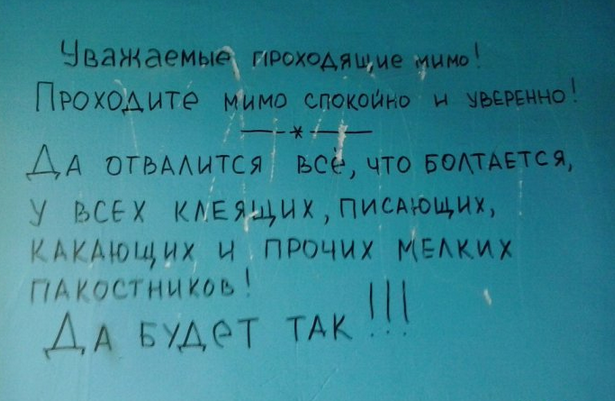 Уважаемые проходящие мимо!
Проходите мимо спокойно и уверенно!
—*—
Да отвалится всё, что болтается,
у всех клеящих, писающих,
какающих и прочих мелких
пакостников!
Да будет так!!!